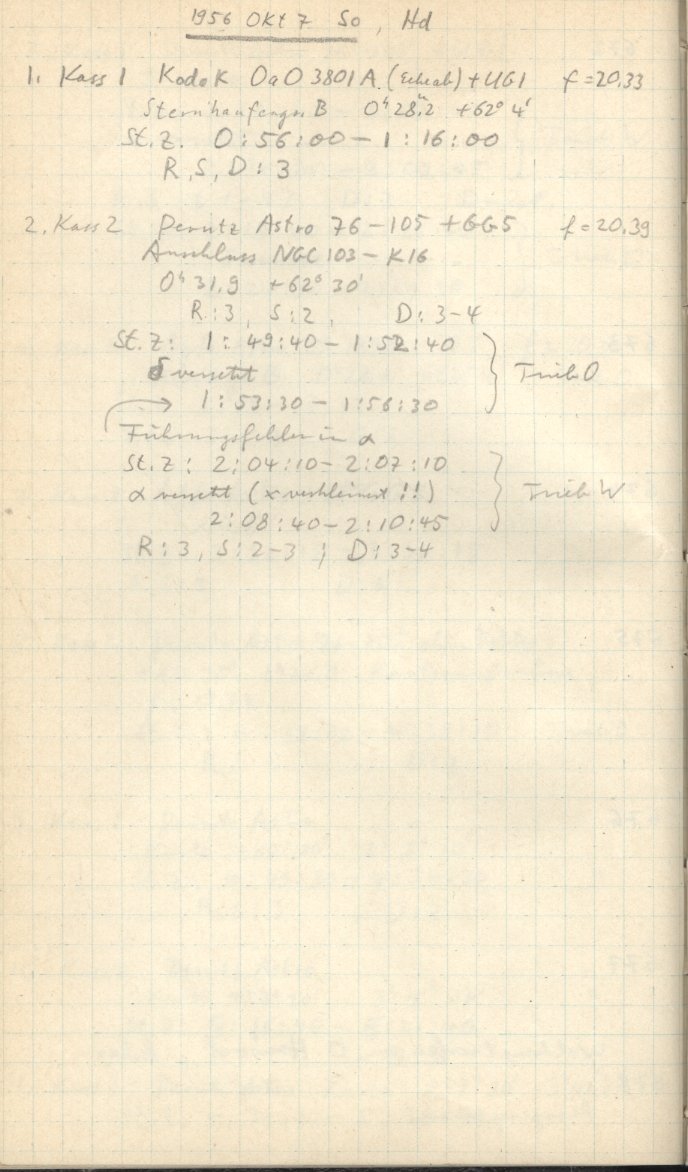 1956 Okt 7 So, Hd
1. Kass 1 Kodak OaO 3801 A. + UG1 f = 20.33
Sternhaufengr. B 0ʰ 28ᵐ.2 +62° 4'
St. Z. 0:56:00 – 1:16:00
R, S, D: 3
2. Kass 2 Perutz Astro 76–105 + GG5 f = 20.39
Anschluss NGC 103 – K16
0ʰ 31.9 +62° 30'
R: 3, S: 2, D: 3–4
St. Z: 1:49:40 – 1:52:40
δ versetzt
Trieb O
1:53:30 – 1:56:30
Führungsfehler in α
St. Z: 2:04:10 – 2:07:10
α versetzt (x verkleinert !!)
Trieb W
2:08:40 – 2:10:45
R: 3, S: 2–3; D: 3–4